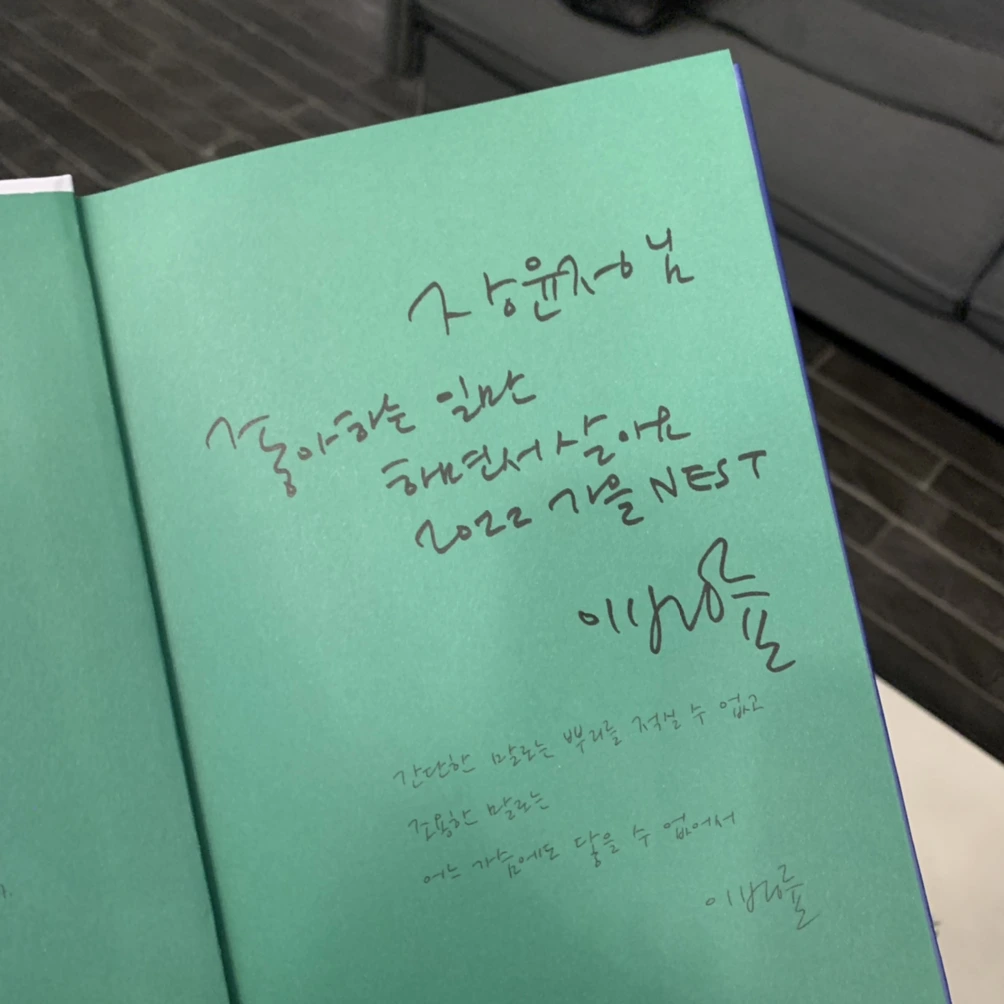 장윤정 님
좋아하는 일만
하면서 살아요
2022 가을 NEST
이병률
간단한 말로는 뿌리를 적실 수 없고
조용한 말로는
어느 가슴에도 닿을 수 없어서
이병률